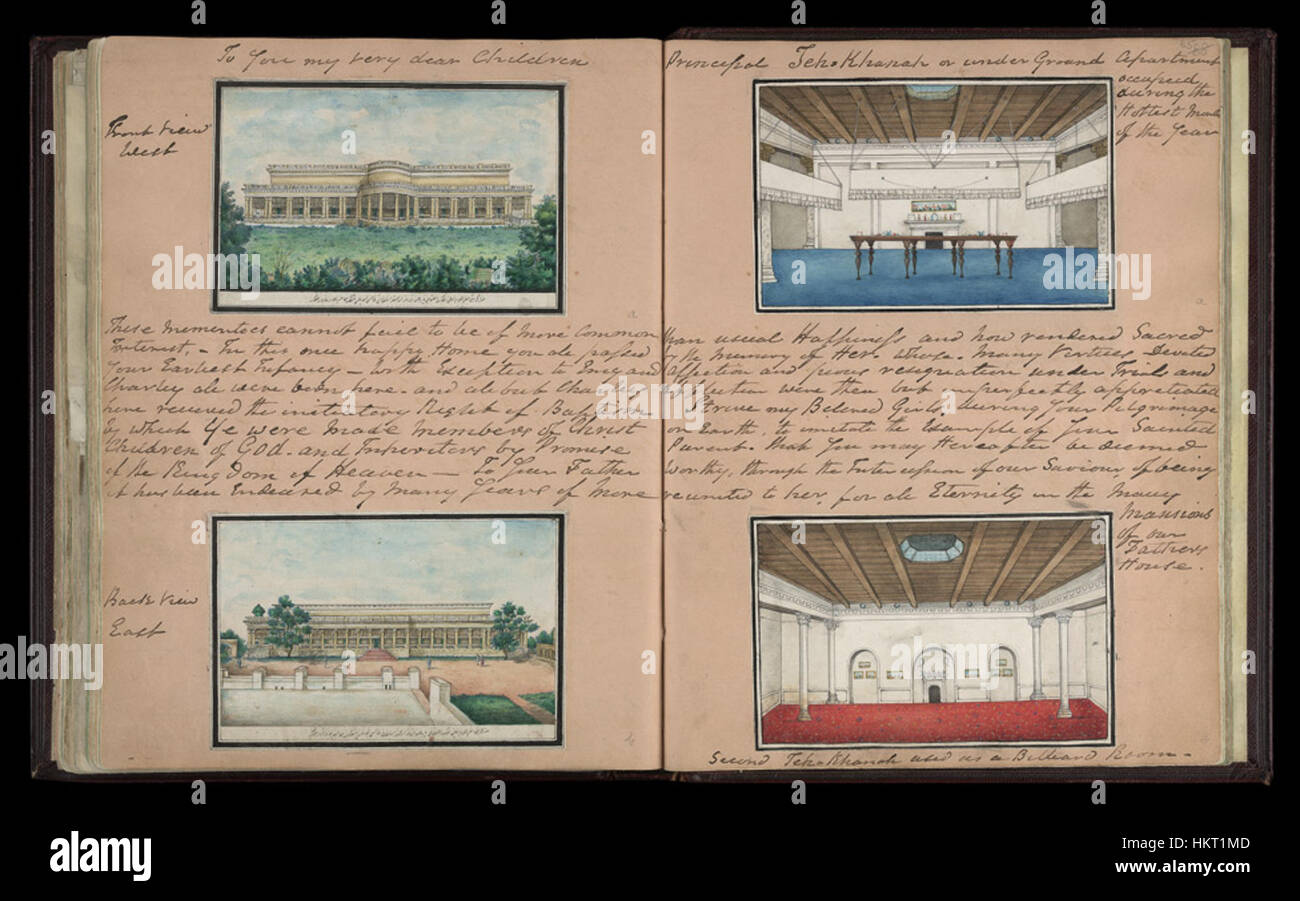 To You my very dear Children
Front View
West
These Mementoes cannot fail to be of more Common
Interest, - In this once happy Home you all passed
Your Earliest Infancy - with Exception to Emy and
Charley all were born here - and all but Charley
have received the initiatory Right of Baptism
by which Ye were made Members of Christ
Children of God - and Inheritors by Promise
of the King Dom of Heaven - To Your Father
it has been Endeared by Many Years of More
Back View
East
Principal Teh-Khanah or under Ground Apartment
occupied
during the
Hottest Month
of the Year
than usual Happiness and now rendered Sacred
by the Memory of Her whose Many Virtues - Devoted
Affection and pious resignation under Trials and
Affliction were then but imperfectly appreciated
Strive my Beloved Girls during Your Pilgrimage
on Earth, to imitate the Example of Your Sainted
Parent - that You may Hereafter be deemed
Worthy, through the Intercession of our Saviour, of being
reunited to her, for all Eternity in the Many
Mansions
of our
Fathers
House.
Second Teh-Khanah used as a Billiard Room -
alamy
alamy stock photo
HKT1MD
www.alamy.com